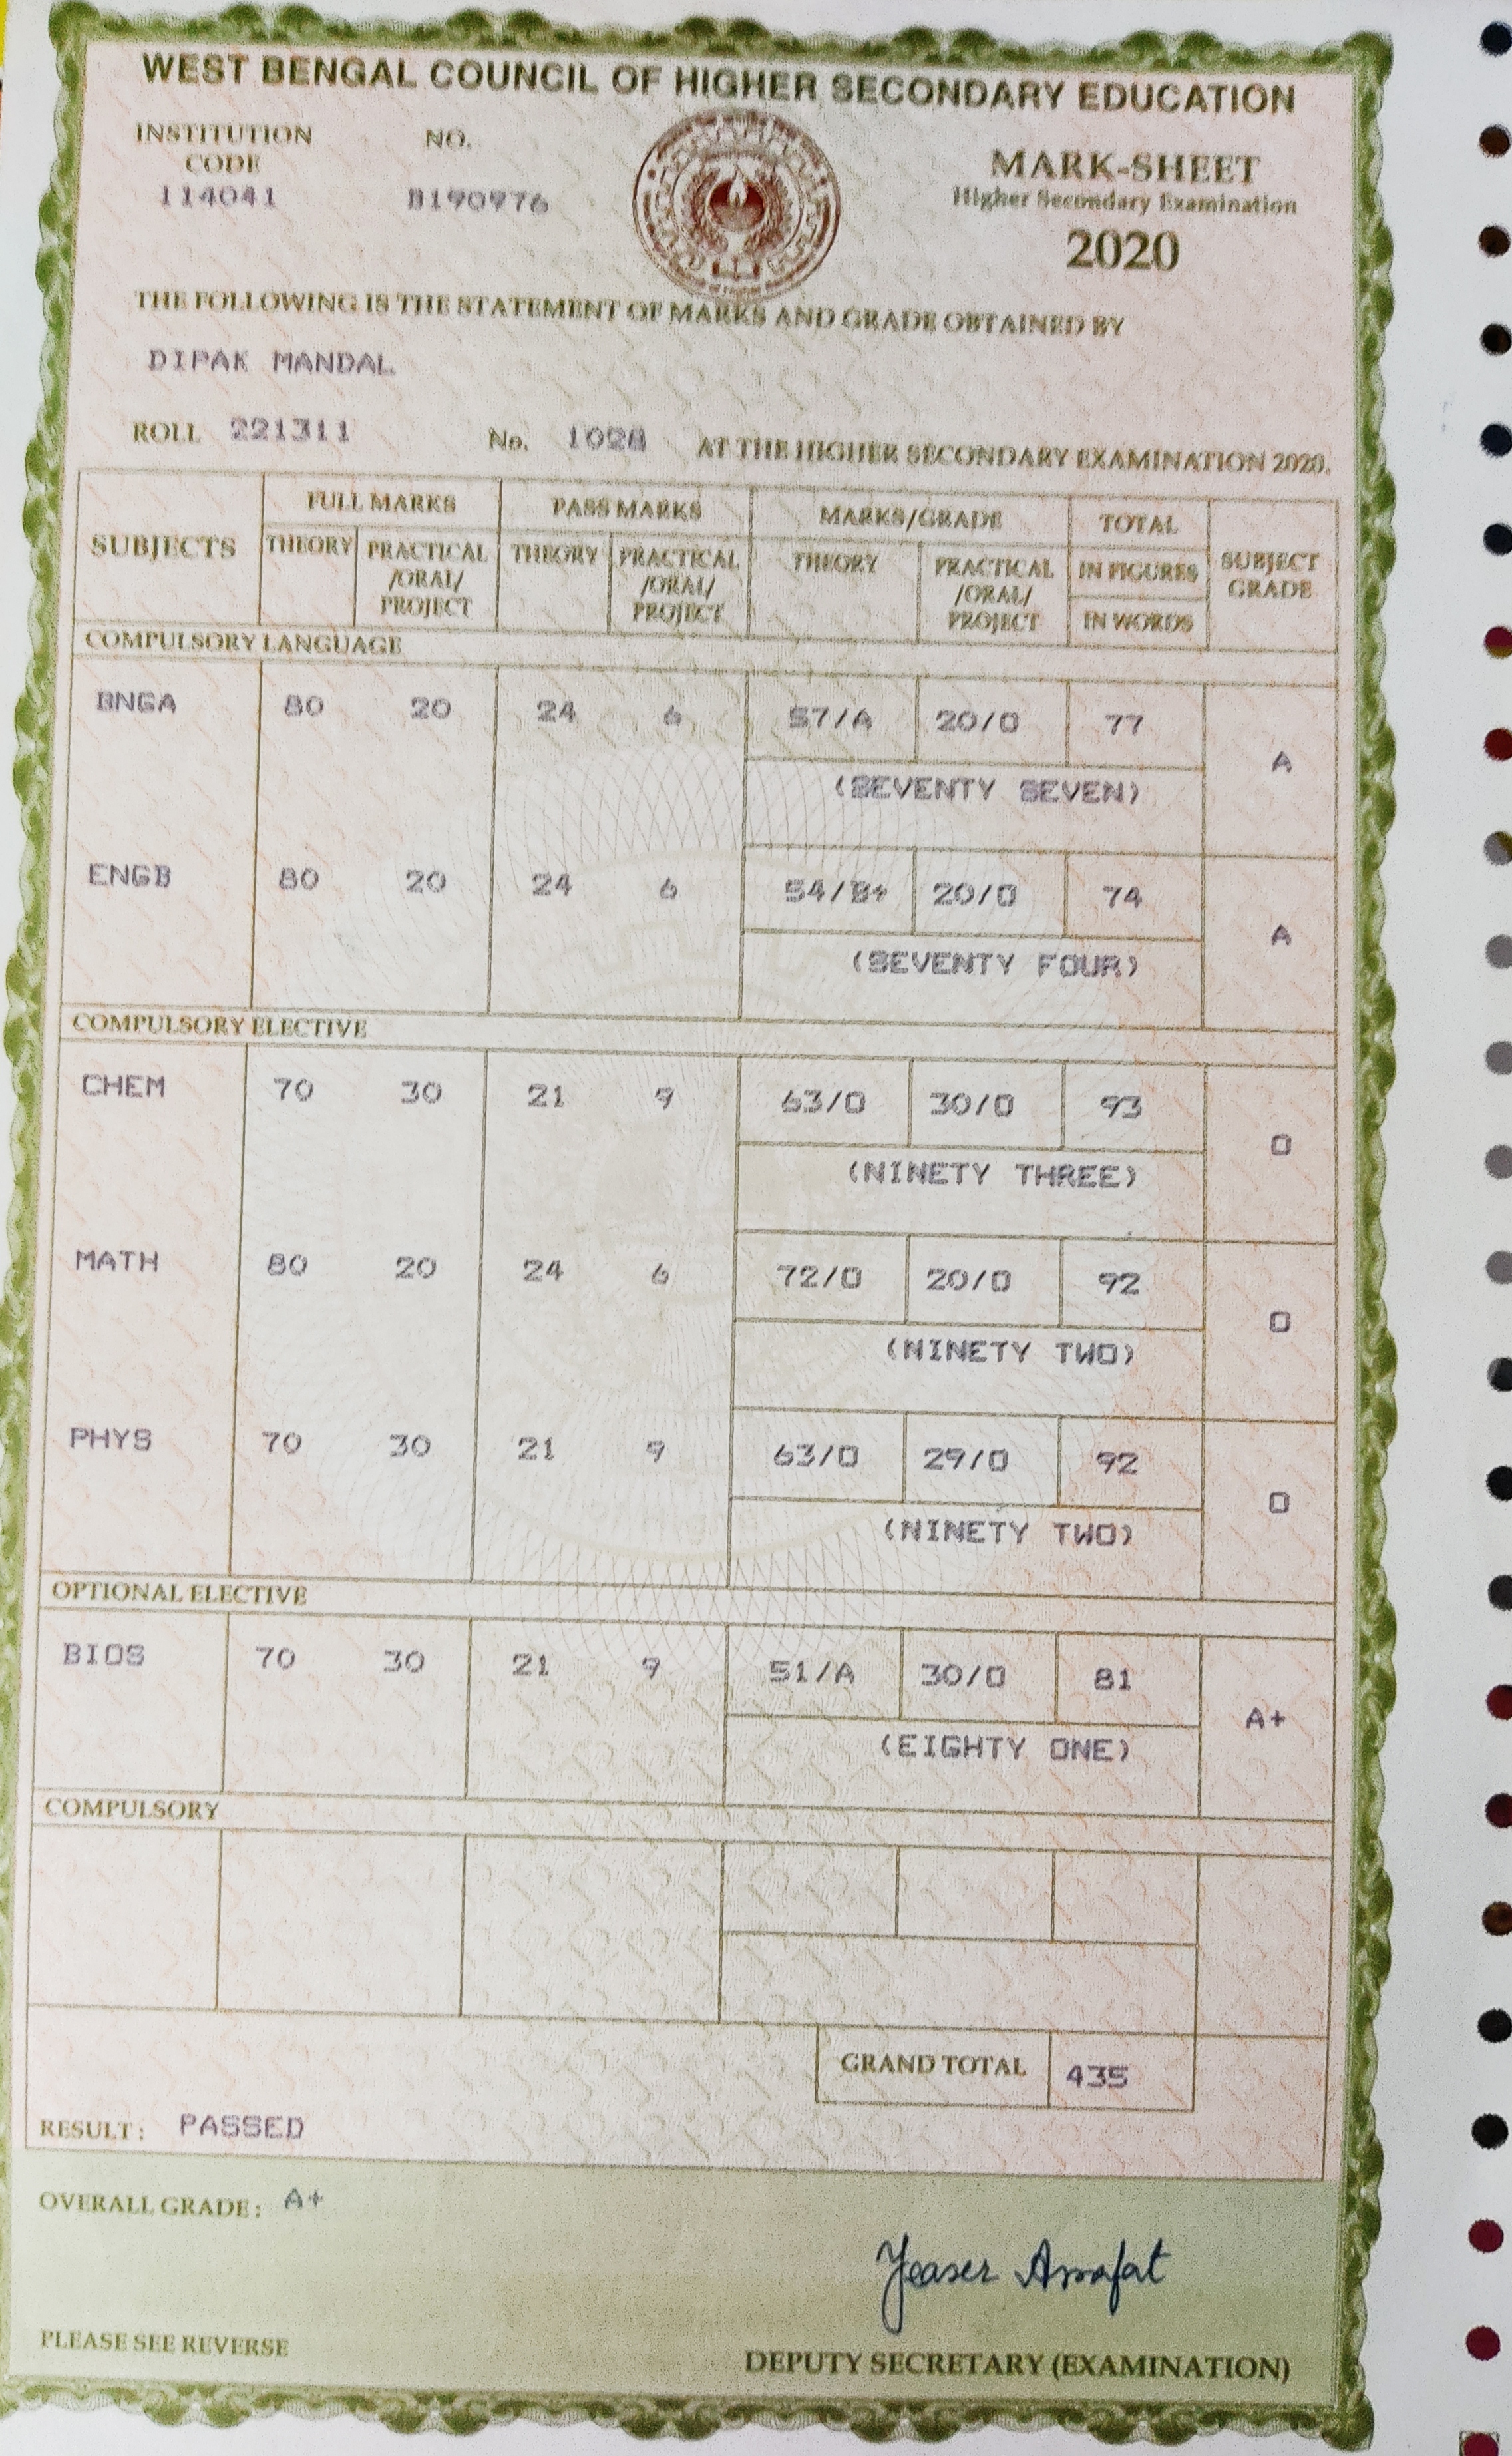 WEST BENGAL COUNCIL OF HIGHER SECONDARY EDUCATION
INSTITUTION CODE NO.
114041 B190976
MARK-SHEET
Higher Secondary Examination
2020
THE FOLLOWING IS THE STATEMENT OF MARKS AND GRADE OBTAINED BY
DIPAK MANDAL
ROLL 221311 No. 1028 AT THE HIGHER SECONDARY EXAMINATION 2020.
SUBJECTS FULL MARKS PASS MARKS MARKS/GRADE TOTAL SUBJECT GRADE
THEORY PRACTICAL /ORAL/ PROJECT THEORY PRACTICAL /ORAL/ PROJECT THEORY PRACTICAL /ORAL/ PROJECT IN FIGURES
IN WORDS
COMPULSORY LANGUAGE
BNGA 80 20 24 6 57/A 20/O 77 A
(SEVENTY SEVEN)
ENGB 80 20 24 6 54/B+ 20/O 74 A
(SEVENTY FOUR)
COMPULSORY ELECTIVE
CHEM 70 30 21 9 63/O 30/O 93 O
(NINETY THREE)
MATH 80 20 24 6 72/O 20/O 92 O
(NINETY TWO)
PHYS 70 30 21 9 63/O 29/O 92 O
(NINETY TWO)
OPTIONAL ELECTIVE
BIOS 70 30 21 9 51/A 30/O 81 A+
(EIGHTY ONE)
COMPULSORY
GRAND TOTAL 435
RESULT: PASSED
OVERALL GRADE: A+
Yeaser Arrafat
PLEASE SEE REVERSE
DEPUTY SECRETARY (EXAMINATION)